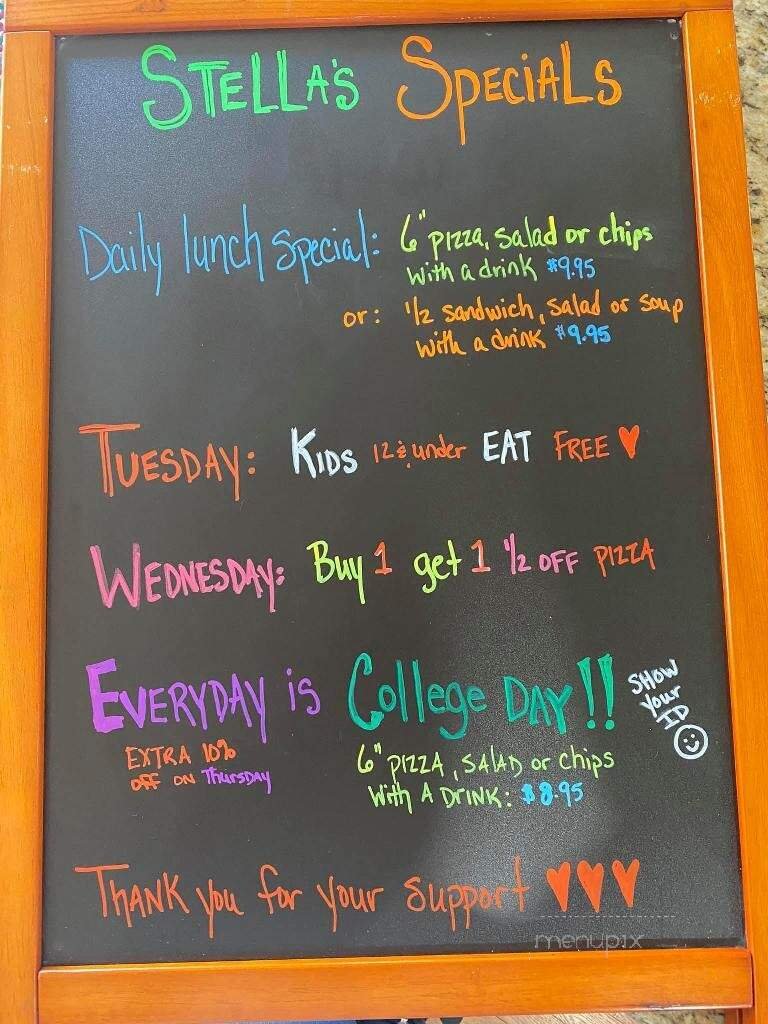 STELLA'S SPECIALS
Daily lunch special: 6" pizza, salad or chips
with a drink $9.95
or: 1/2 sandwich, salad or soup
with a drink $9.95
TUESDAY: KIDS 12 & under EAT FREE ♥
WEDNESDAY: Buy 1 get 1 1/2 OFF PIZZA
EVERYDAY is College DAY!! SHOW
Your
ID
☺
EXTRA 10%
OFF ON THURSDAY
6" PIZZA, SALAD or chips
With A DRINK: $8.95
THANK you for your support ♥♥♥
menupix